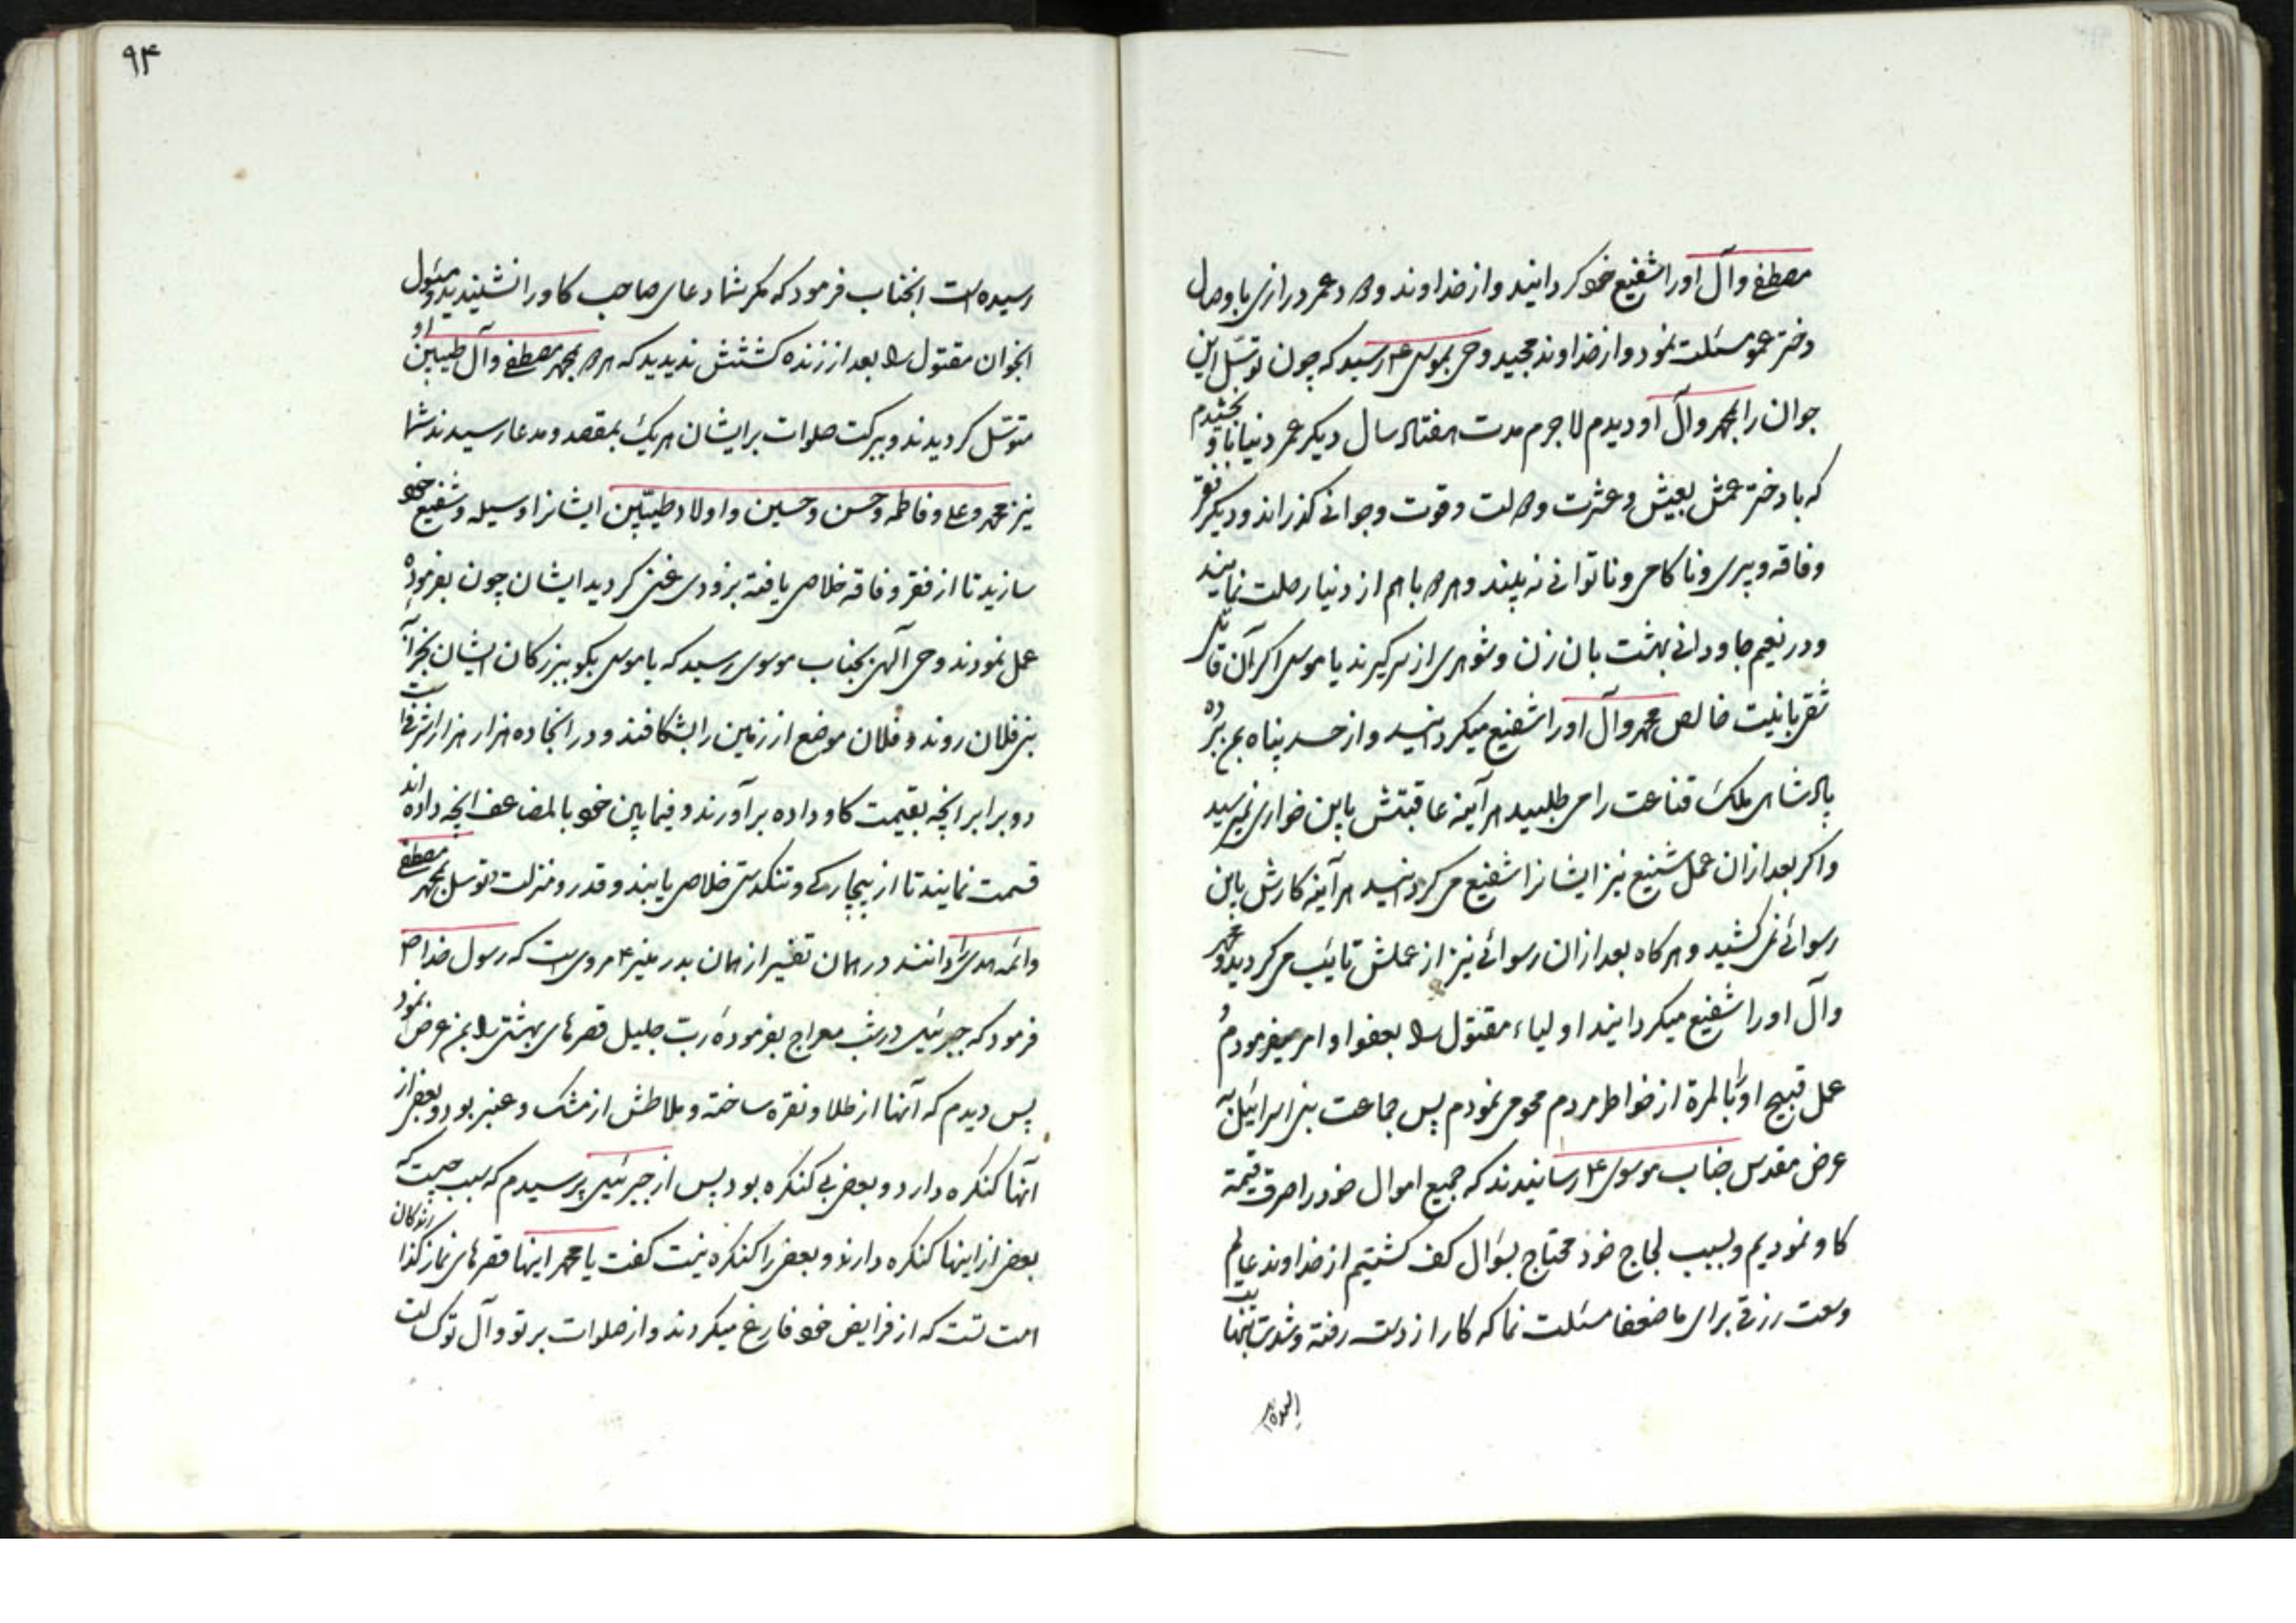 مصطفی وآل اورا شفیع خود کردانید واز خداوند ودود عمر درازی با وصال
دختر عمو مسئلت نمود واز خداوند مجید وحی بموسی ع رسید که چون توسل این
جوان را بمحمد وآل او دیدم لاجرم مدت هفتاد سال دیکر عمر دنیا باو بخشیدم
که با دختر عمش بعیش وعشرت وصحت وقوت وجوانی کذراند ودیکر فقر
وفاقه وپیری وناکامی وناتوانی نه بیند وهردو باهم از دنیا رحلت نمایند
ودر نعیم جاودانی بهشت بان زن وشوهری از سر کیرند یا موسی اکر آن قاتل
شقی بانیت خالص محمد وآل اورا شفیع میکردانید واز حسد پناه بمن برده
پادشاهی ملک قناعت را می طلبید هرآینه عاقبتش باین خواری نمیرسید
واکر بعد ازان عمل شنیع نیز ایشانرا شفیع می کردانید هرآینه کارش باین
رسوائی نمی کشید وهرکاه بعد ازان رسوائی نیز از عملش تائب می کردید ومحمد
وآل اورا شفیع میکردانید اولیاء مقتول را بعفو او امر میفرمودم و
عمل قبیح اورا بالمرة از خواطر مردم محو می نمودم پس جماعت بنی اسرائیل به
عرض مقدس جناب موسوی ع رسانیدند که جمیع اموال خود را صرف قیمة
کاو نمودیم وبسبب لجاج خود محتاج بسؤال کف کشتیم از خداوند عالم
وسعت رزقی برای ما ضعفا مسئلت نما که کار از دست رفته وشدت بنهایت
رسیده است
رسیده است انجناب فرمود که مکر شما دعای صاحب کاو را نشنیدید ومسئول
انجوان مقتول را بعد از زنده کشتنش ندیدید که هردو بمحمد مصطفی وآل طیبین او
متوسل کردیدند وببرکت صلوات بر ایشان هریک بمقصد ومدعا رسیدند شما
نیز محمد وعلی وفاطمه وحسن وحسین واولاد طیبین ایشانرا وسیله وشفیع خود
سازید تا از فقر وفاقه خلاص یافته بزودی غنی کردید ایشان چون بفرموده
عمل نمودند وحی آلهی بجناب موسوی رسید که یا موسی بکو ببزرکان ایشان بخرابه
بنی فلان روند وفلان موضع از زمین را بشکافند ودر انجا ده هزار هزار اشرفی است
دو برابر انچه بقیمت کاو داده برآورند وفیمابین خود بالمضاعف انچه داده اند
قسمت نمایند تا از بیچارکی وتنکدستی خلاص یابند وقدر ومنزلت توسل بمحمد مصطفی
وائمه هدی را دانند در همان تفسیر از همان بدر منیر ع مروی است که رسول خدا ص
فرمود که جبرئیل در شب معراج بفرمودهٔ رب جلیل قصرهای بهشتی را بمن عرض نمود
پس دیدم که آنها از طلا ونقره ساخته وملاطش از مشک وعنبر بود وبعضی از
آنها کنکره دارد وبعضی بی کنکره بود پس از جبرئیل پرسیدم که سبب چیست که
بعضی از اینها کنکره دارند وبعضی را کنکره نیست کفت یا محمد اینها قصرهای نمازکذارندکان
امت تست که از فرایض خود فارغ میکردند واز صلوات بر تو وآل تو کسالت
۹۴